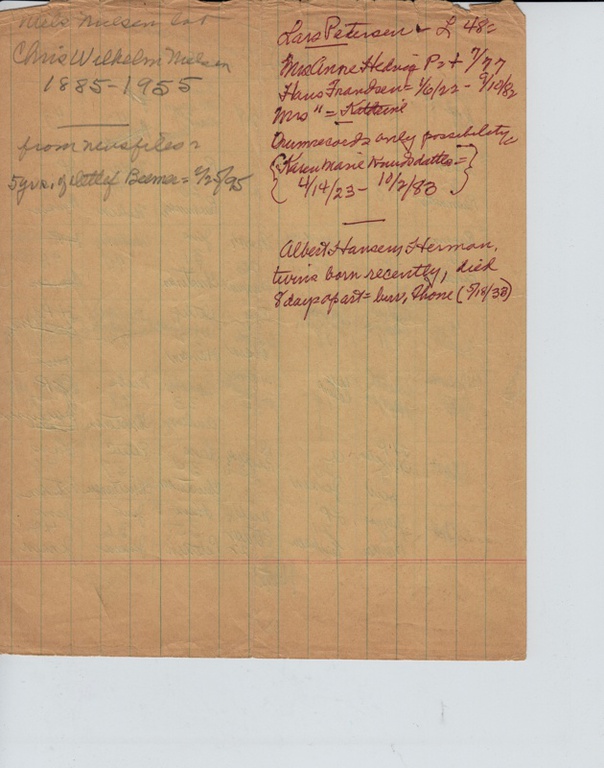 Nels Nielsen lot
Chris Wilhelm Nielsen
1885-1955
from news files =
5 yr. s. of Detlef Beemer = 2/25/95
Lars Petersen - L 48 =
Mrs Anne Hedvig P = + 7/77
Hans Frandsen = 1/6/22 - 9/10/82
Mrs " = Katherine
records only possibility
{Karen Marie =}
4/14/23 - 10/2/83
Albert Hansen, Herman,
twins born recently, died
8 days apart = bur, (5/18/33)